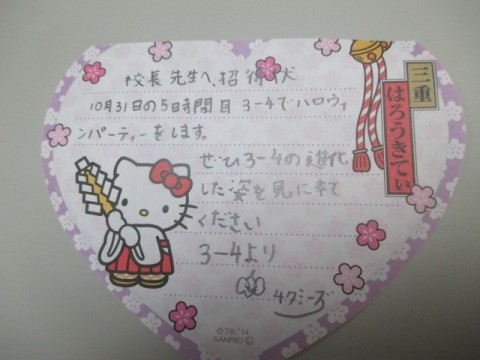 校長先生へ、招待犬
三重
はろうきてぃ
10月31日の5時間目 3-4でハロウィ
ンパーティーをします。
ぜひ3-4の進化
した姿を見に来て
ください
3-4より
4クミーズ
©'76,'14
SANRIO